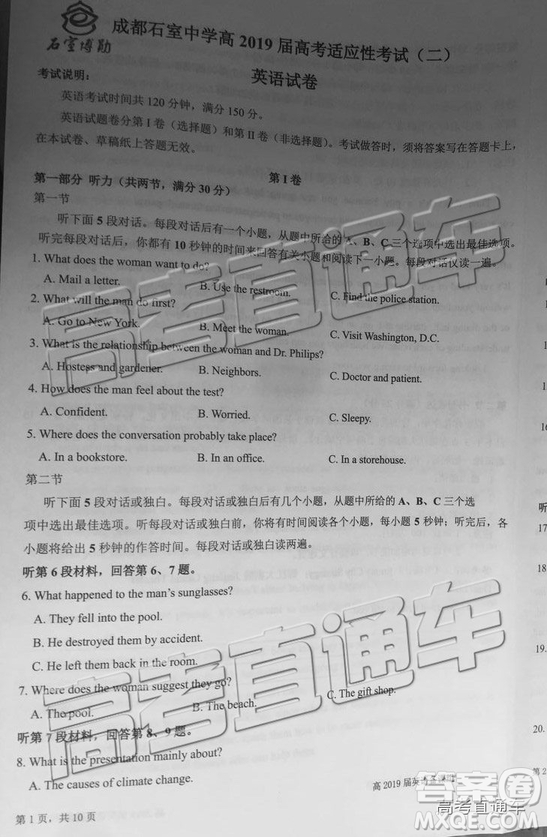 石室博勋
成都石室中学高 2019 届高考适应性考试（二）
英语试卷
考试说明：
英语考试时间共 120 分钟，满分 150 分。
英语试题卷分第 I 卷（选择题）和第 II 卷（非选择题）。考试做答时，须将答案写在答题卡上，
在本试卷、草稿纸上答题无效。
第 I 卷
第一部分 听力（共两节，满分 30 分）
第一节
听下面 5 段对话。每段对话后有一个小题，从题中所给的 A、B、C 三个选项中选出最佳选项。
听完每段对话后，你都有 10 秒钟的时间来回答有关小题和阅读下一小题。每段对话仅读一遍。
1. What does the woman want to do?
A. Mail a letter. B. Use the restroom. C. Find the police station.
2. What will the man do first?
A. Go to New York. B. Meet the woman. C. Visit Washington, D.C.
3. What is the relationship between the woman and Dr. Philips?
A. Hostess and gardener. B. Neighbors. C. Doctor and patient.
4. How does the man feel about the test?
A. Confident. B. Worried. C. Sleepy.
5. Where does the conversation probably take place?
A. In a bookstore. B. In an office. C. In a storehouse.
第二节
听下面 5 段对话或独白。每段对话或独白后有几个小题，从题中所给的 A、B、C 三个选
项中选出最佳选项。听每段对话或独白前，你将有时间阅读各个小题，每小题 5 秒钟；听完后，各
小题将给出 5 秒钟的作答时间。每段对话或独白读两遍。
听第 6 段材料，回答第 6、7 题。
6. What happened to the man's sunglasses?
A. They fell into the pool.
B. He destroyed them by accident.
C. He left them back in the room.
7. Where does the woman suggest they go?
A. The pool. B. The beach. C. The gift shop.
听第 7 段材料，回答第 8、9 题。
8. What is the presentation mainly about?
A. The causes of climate change.
高 2019 届英
第 1 页，共 10 页
高考直通车
高考直通车
高考直通车
答案圈
MXQE.COM
19.
20.
第 2